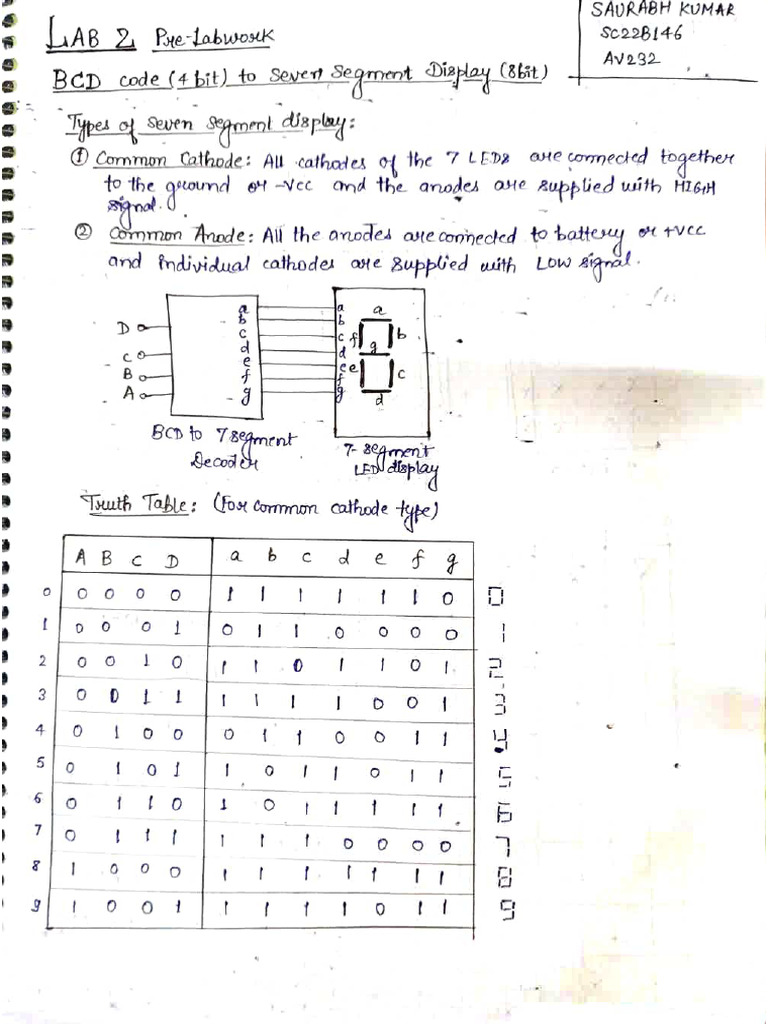 SAURABH KUMAR
SC22B146
AV232
LAB 2 Pre-Labwork
BCD code (4 bit) to Seven Segment Display (8bit)
Types of seven segment display:
① Common Cathode: All cathodes of the 7 LEDs are connected together
to the ground or -Vcc and the anodes are supplied with HIGH
signal.
② Common Anode: All the anodes are connected to battery or +Vcc
and individual cathodes are supplied with LOW signal.
a a a
b b
D c c f b
d d g
C e e e c
B f f
A g g d
BCD to 7 segment
Decoder
7-segment
LED display
Truth Table: (For common cathode type)
A B C D a b c d e f g
0 0 0 0 0 1 1 1 1 1 1 0 0
1 0 0 0 1 0 1 1 0 0 0 0 1
2 0 0 1 0 1 1 0 1 1 0 1 2
3 0 0 1 1 1 1 1 1 0 0 1 3
4 0 1 0 0 0 1 1 0 0 1 1 4
5 0 1 0 1 1 0 1 1 0 1 1 5
6 0 1 1 0 1 0 1 1 1 1 1 6
7 0 1 1 1 1 1 1 0 0 0 0 7
8 1 0 0 0 1 1 1 1 1 1 1 8
9 1 0 0 1 1 1 1 1 0 1 1 9